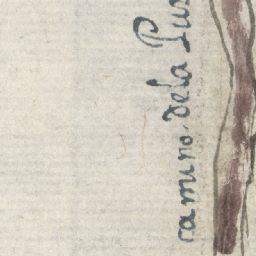 camino. dela Pu